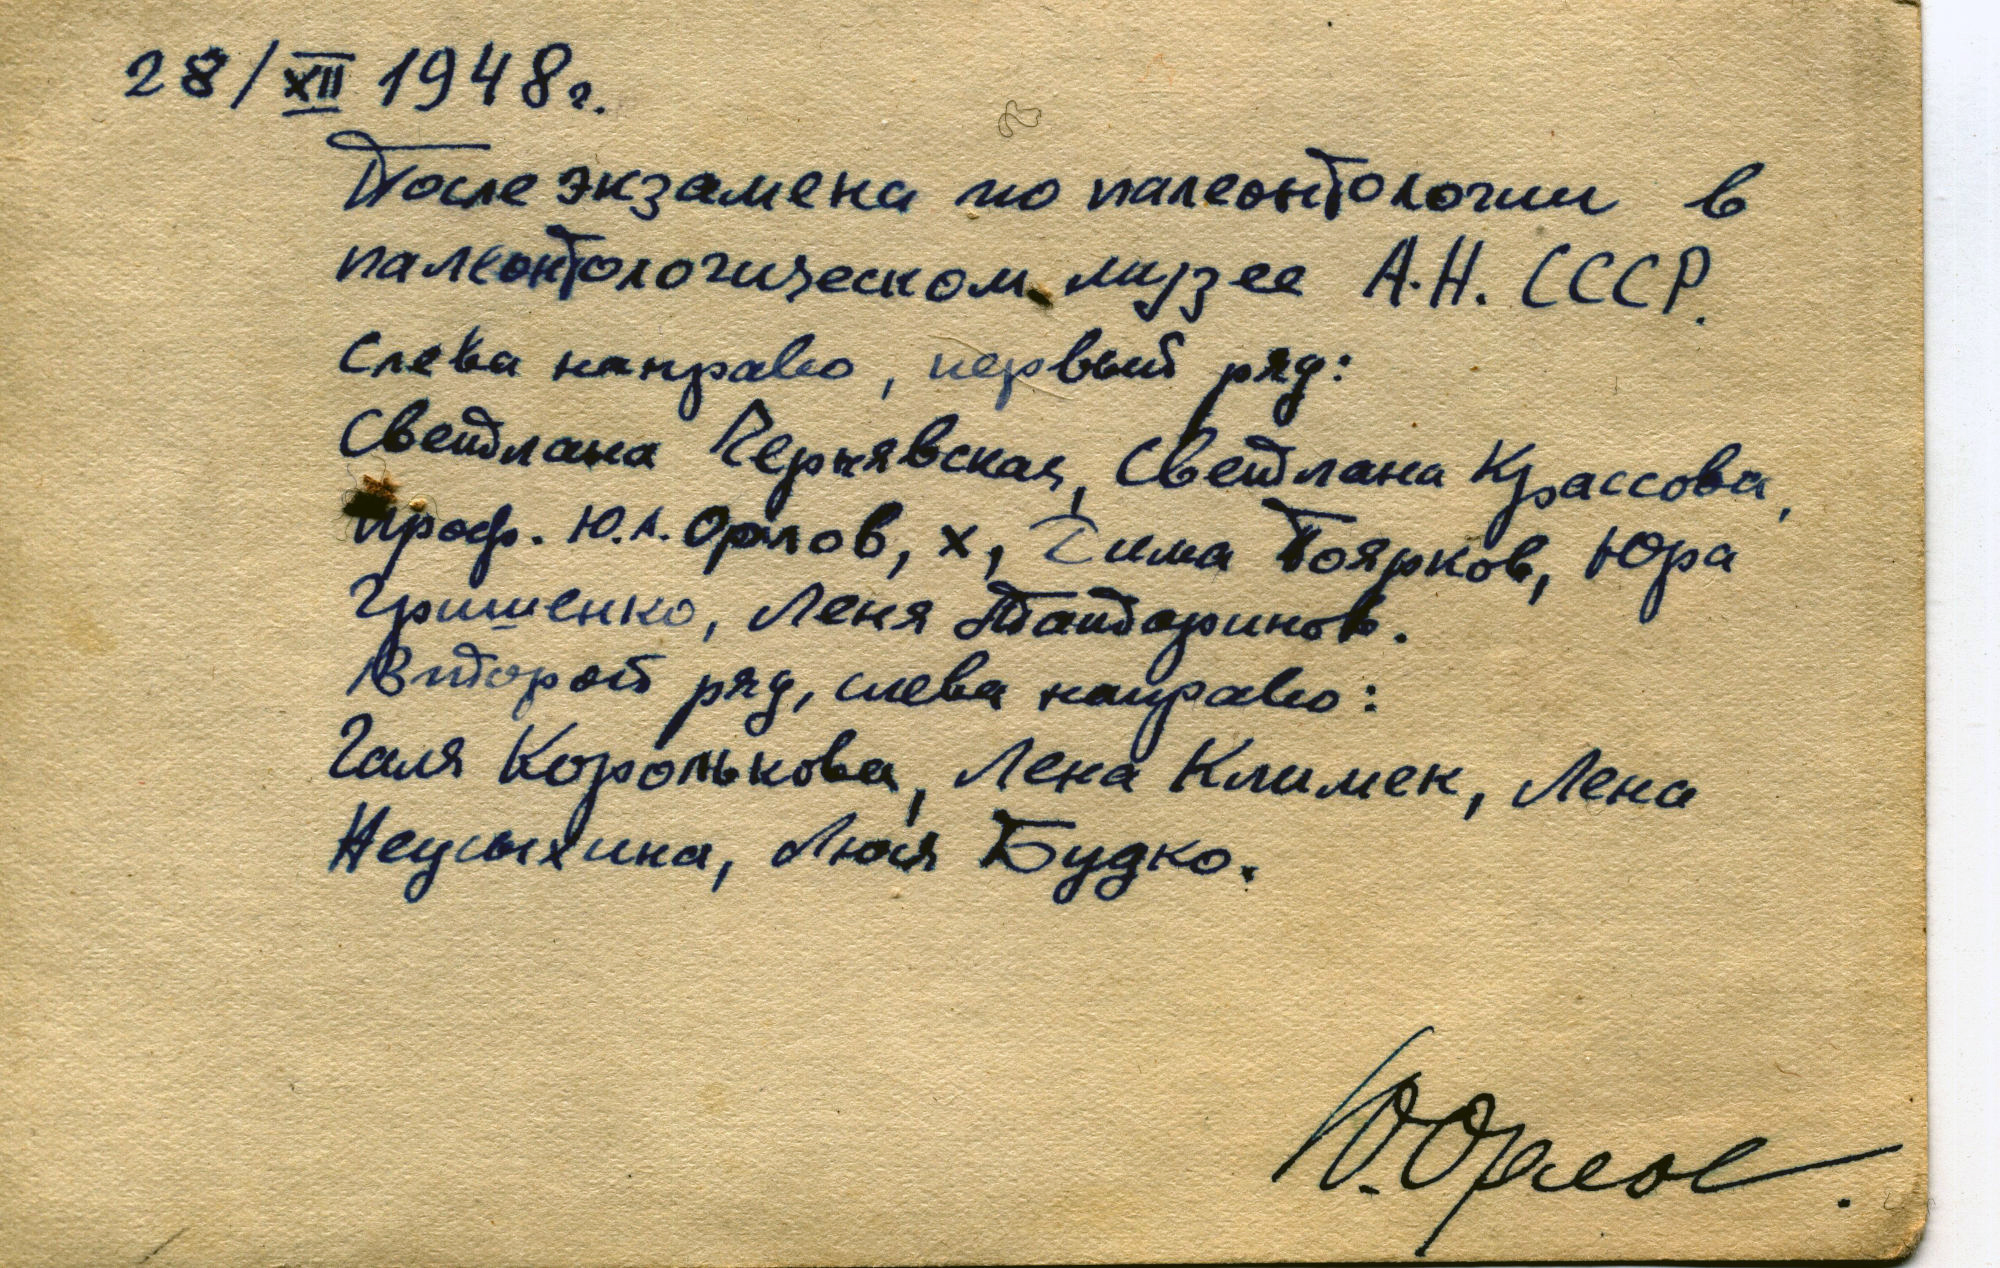 28/XII 1948 г.
После экзамена по палеонтологии в
палеонтологическом музее А.Н. СССР.
Слева направо, первый ряд:
Светлана Чернявская, Светлана Крассова,
проф. Ю.А. Орлов, х, Дима Поярков, Юра
Гришенко, Леня Татаринов.
Второй ряд, слева направо:
Галя Королькова, Лена Климек, Лена
Неусыхина, Люся Будко.
Ю. Орлов.